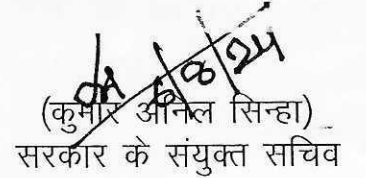 6/8/24
(कुमार अनिल सिन्हा)
सरकार के संयुक्त सचिव